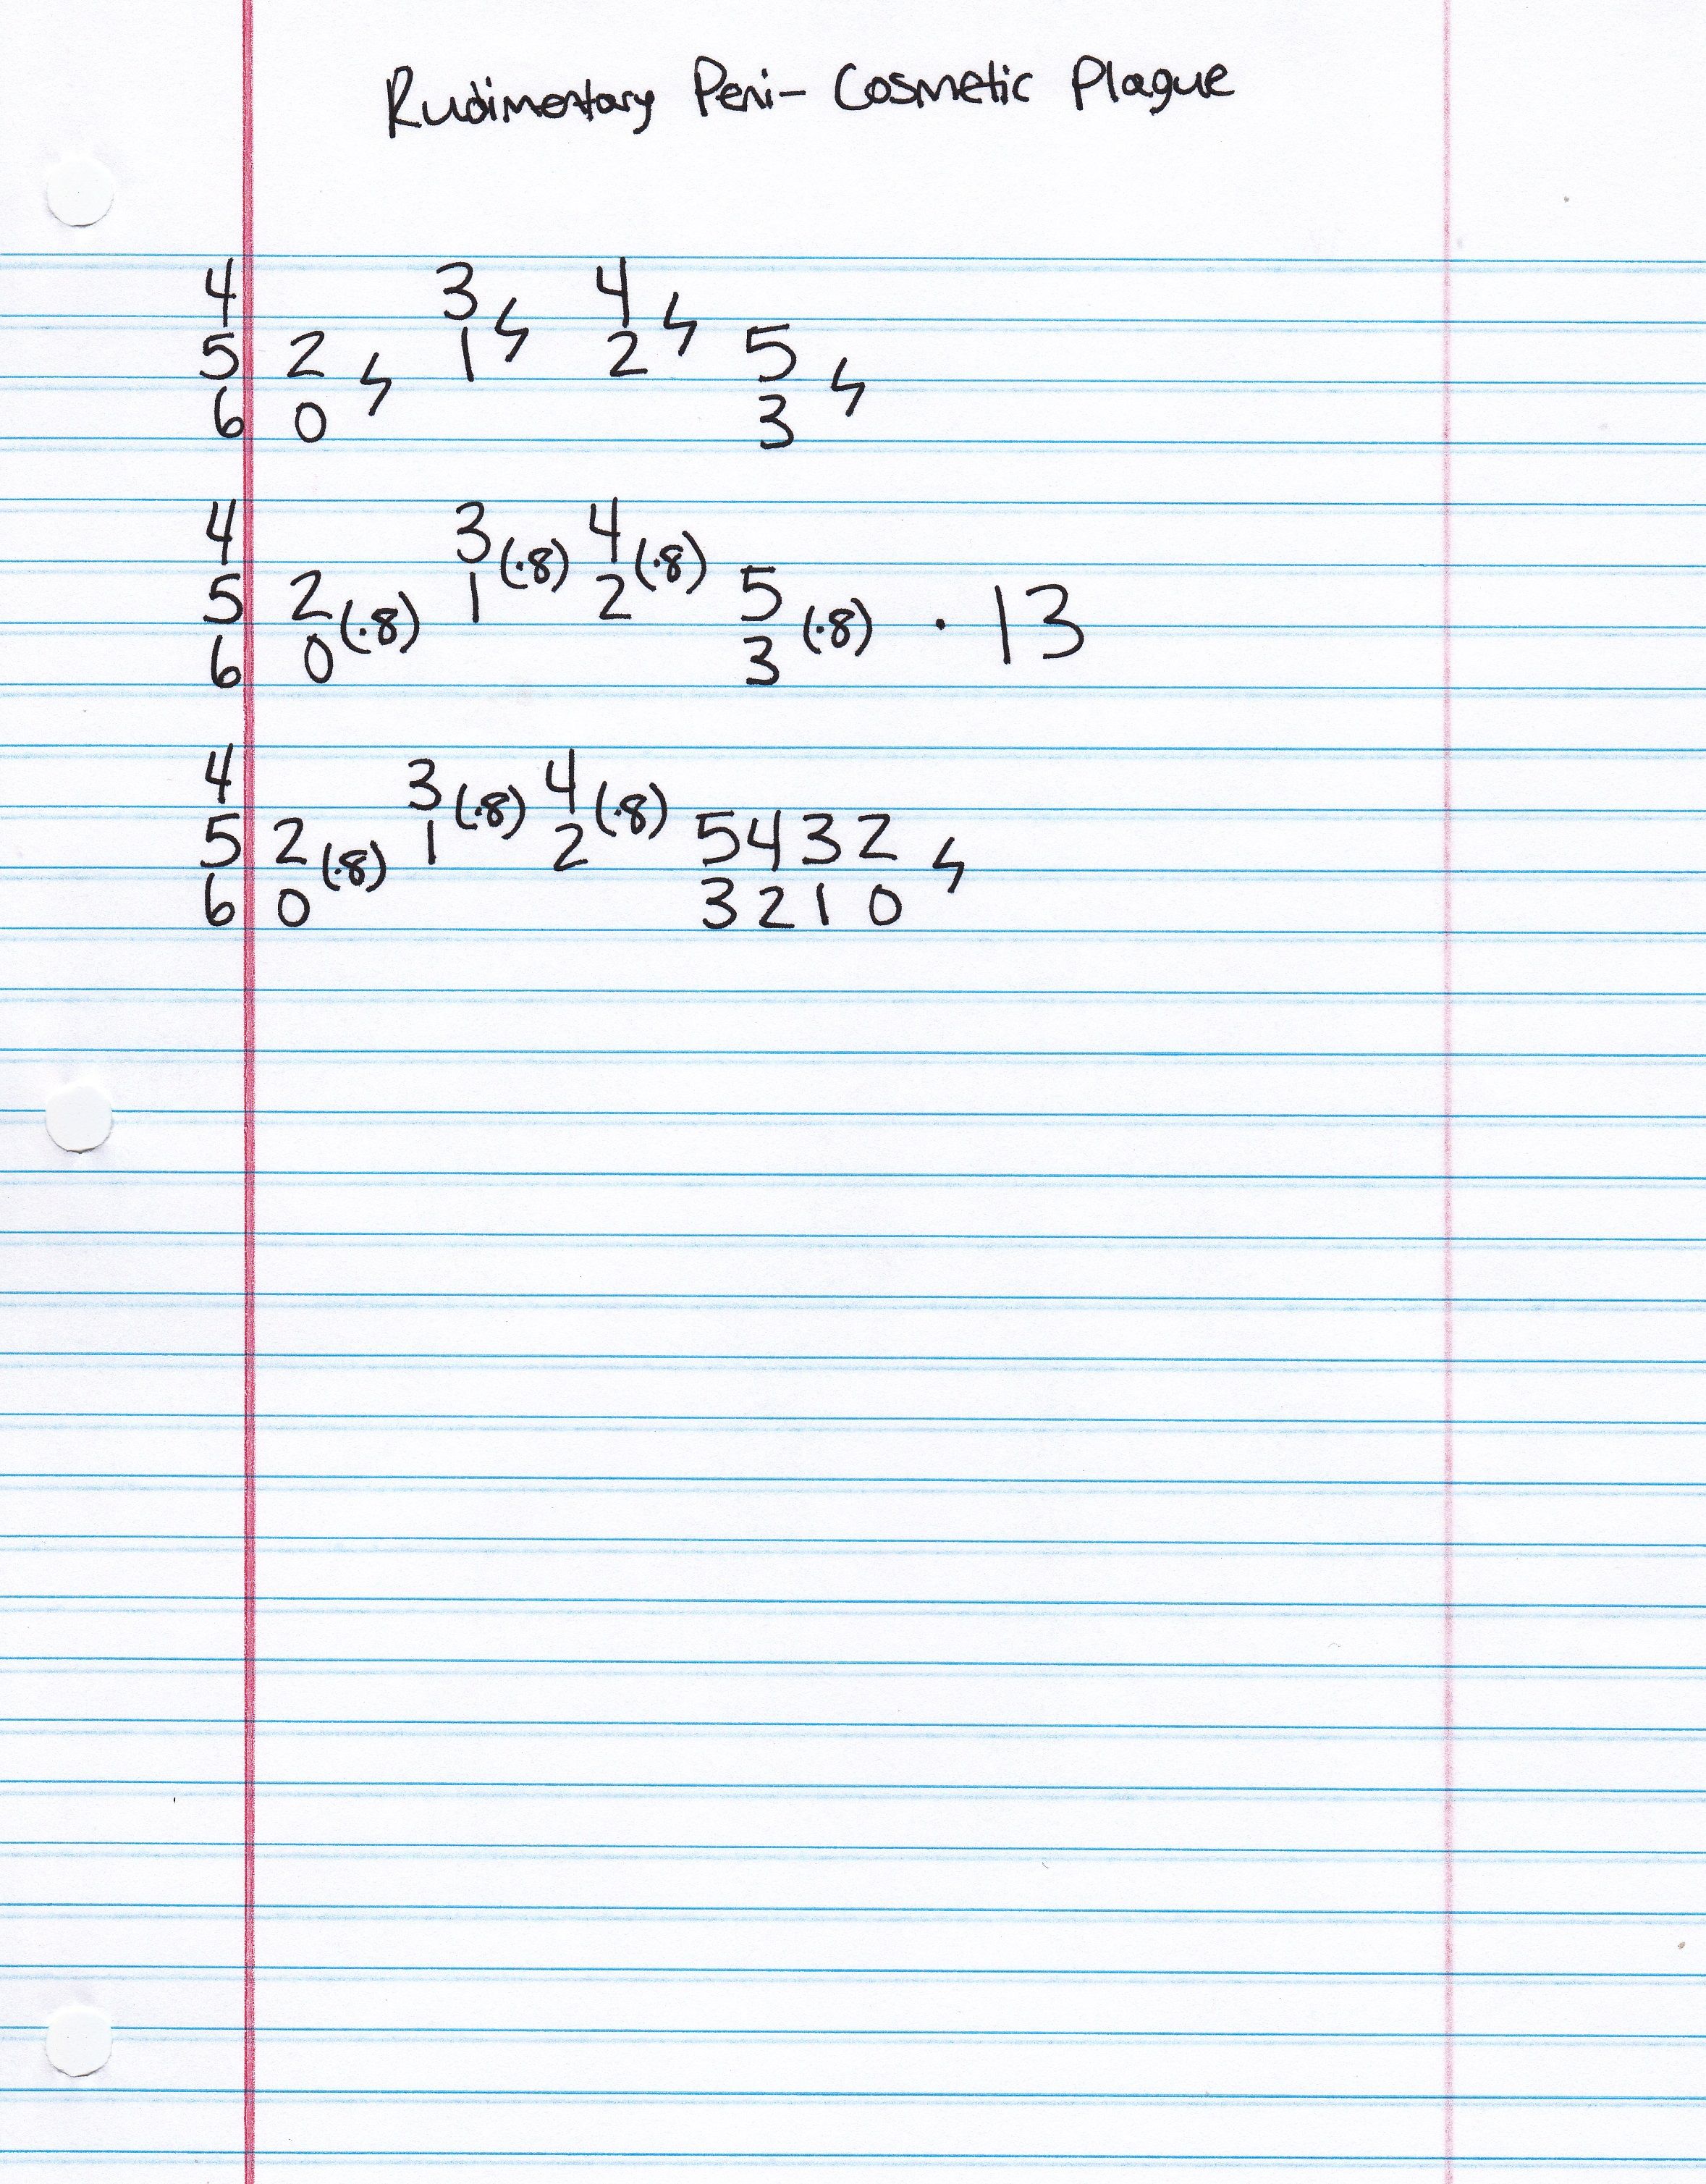 Rudimentary Peni- Cosmetic Plague
4 3 ϟ 4 ϟ
5 2 ϟ 1 2 5 ϟ
6 0 3
4 3 (·8) 4 (·8)
5 2 (·8) 1 2 5 (·8) · 13
6 0 3
4 3 (·8) 4 (·8)
5 2 (·8) 1 2 5 4 3 2 ϟ
6 0 3 2 1 0